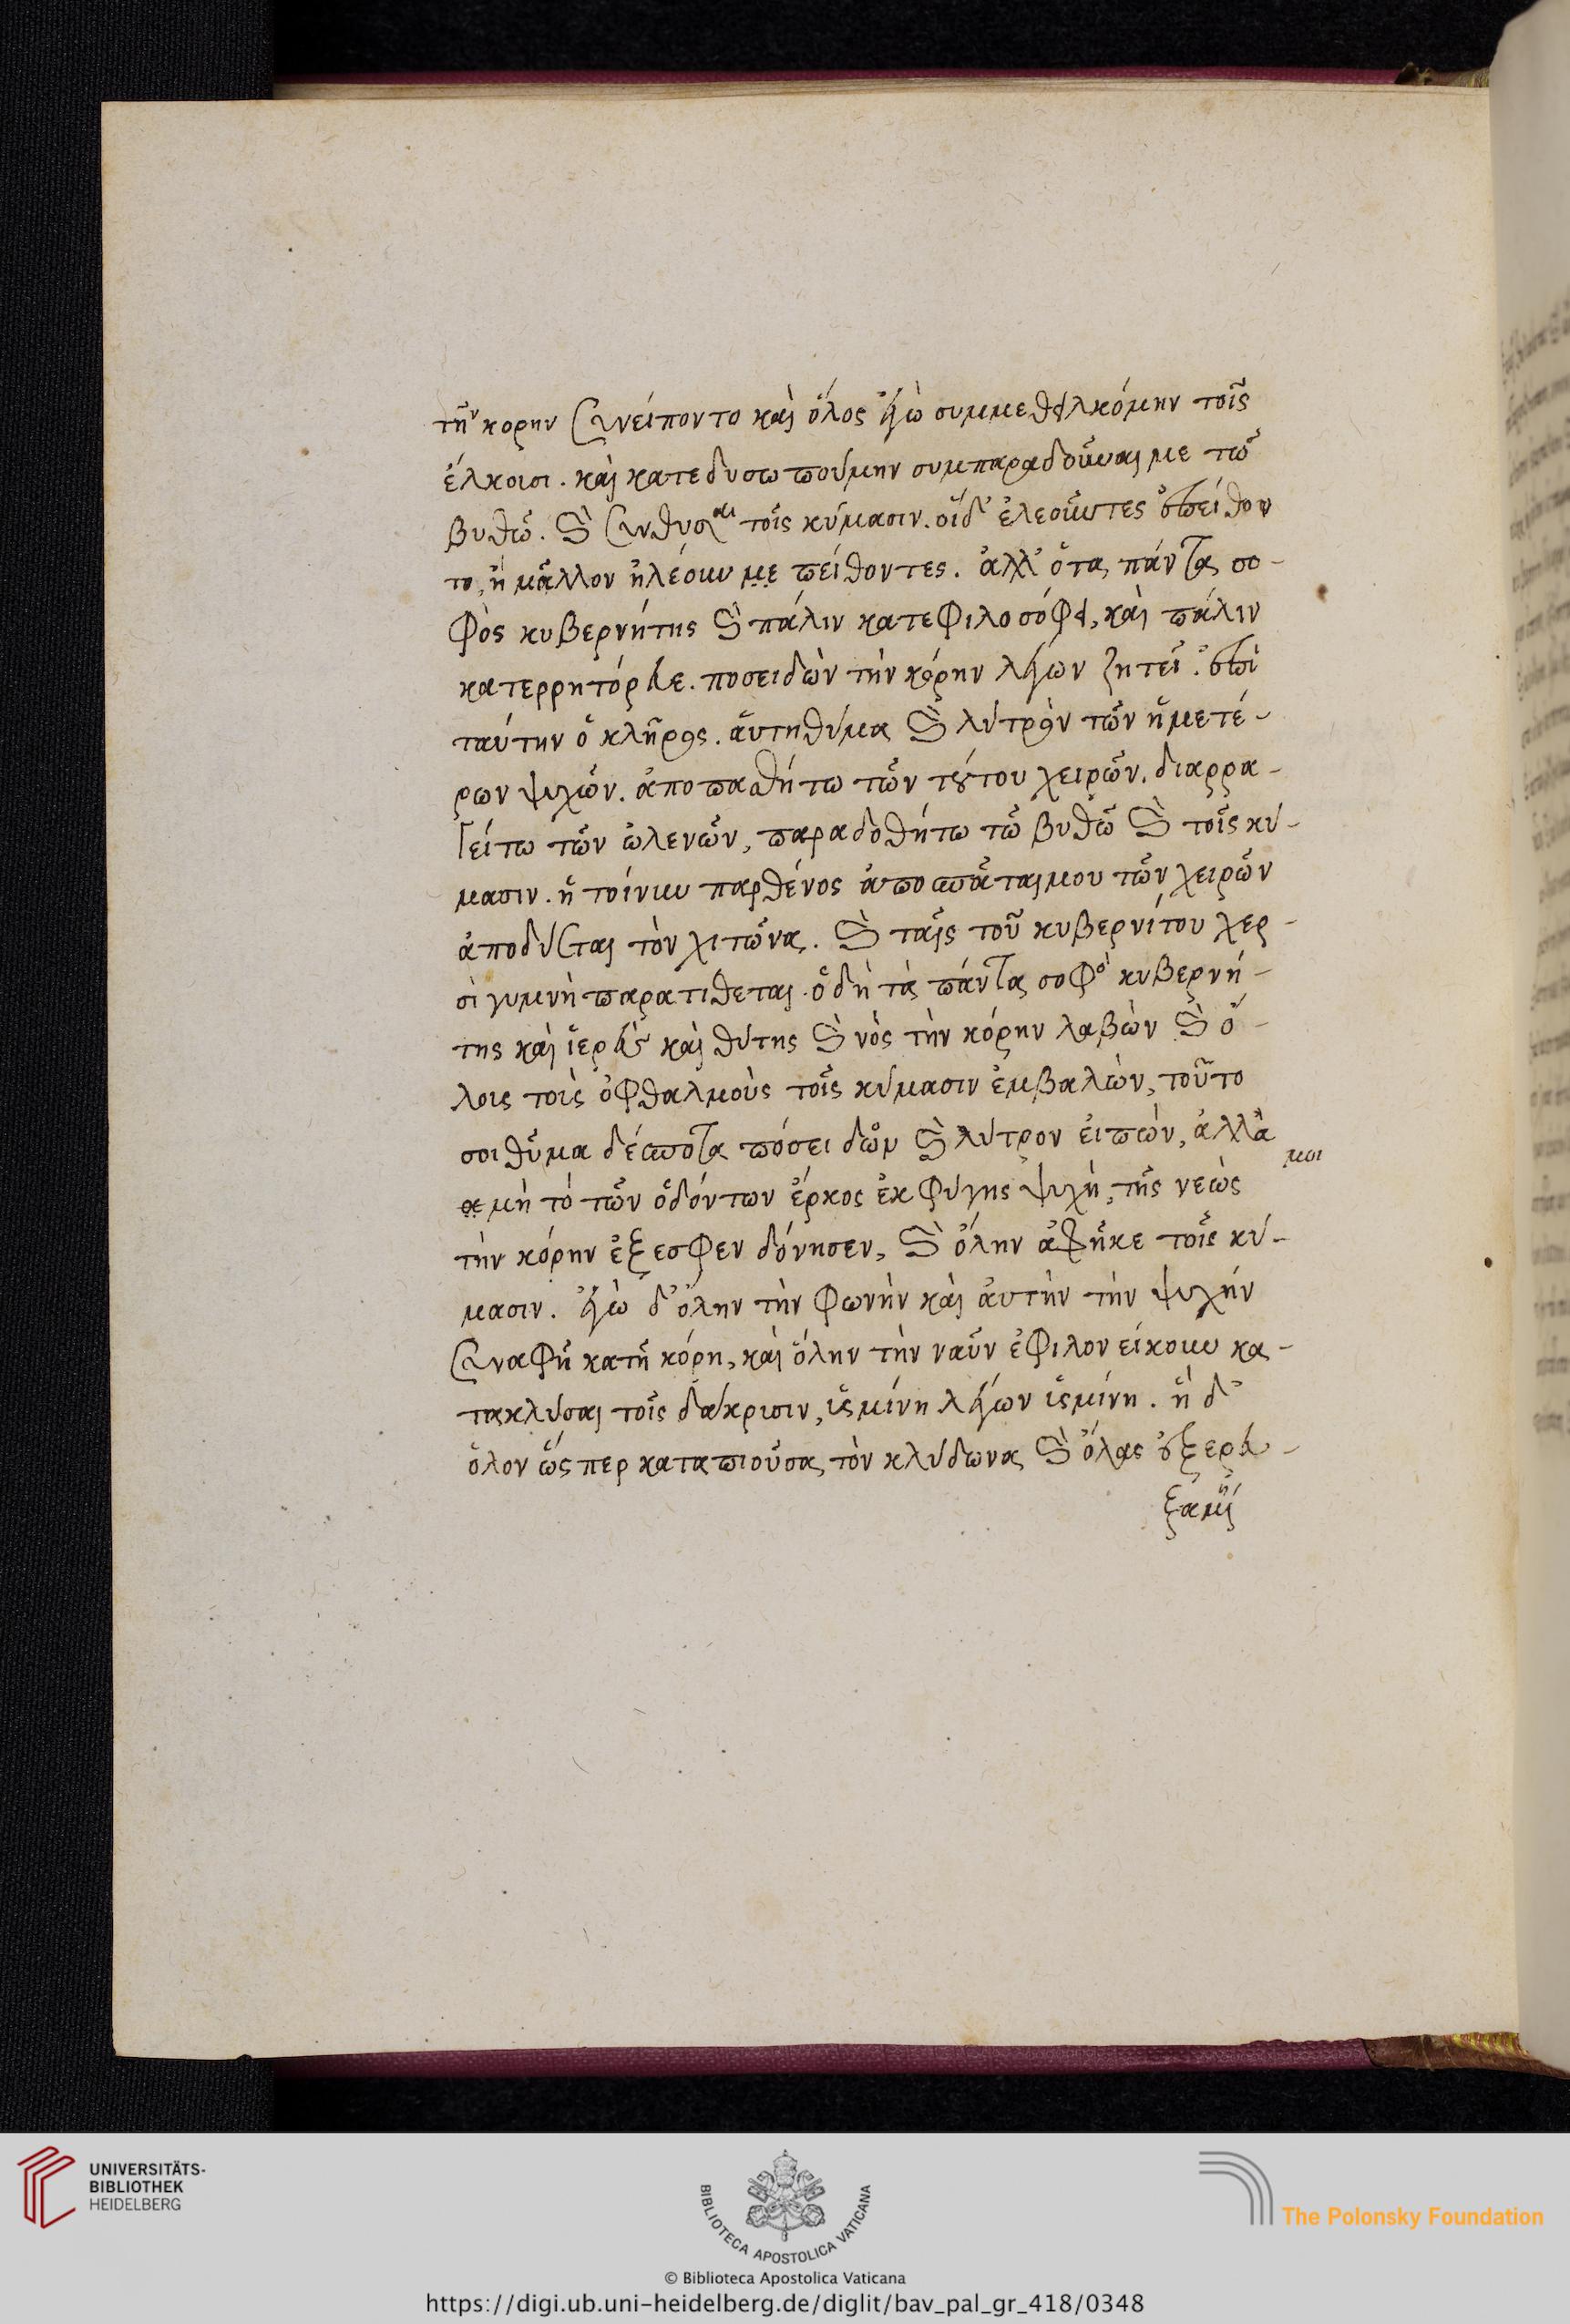 τῆν κορην συνείποντο καὶ ὅλος ἐγὼ συμμεθειλκόμην τοῖς
ἕλκουσι. καὶ κατεδυσωπούμην συμπαραδοῦναι με τῶ
βυθῶ. καὶ συνθυσαι τοῖς κύμασιν. οἱ δ' ἐλεοῦντες ἐπείθον
το, ἢ μᾶλλον ἠλέουν με πείθοντες. ἀλλ' ὁ τα πάντα σο-
φὸς κυβερνήτης καὶ πάλιν κατεφιλοσόφει, καὶ πάλιν
κατερρητόρευε. ποσειδὼν τὴν κόρην λέγων ζητεῖ. ἐπὶ
ταύτην ὁ κλῆρος. αὕτη θύμα καὶ λύτρὸν τῶν ἡμετέ-
ρων ψυχῶν. ἀποσπασθήτω τῶν τούτου χειρῶν. διαρρα-
γείτω τῶν ὠλενῶν, παραδοθήτω τῶ βυθῶ καὶ τοῖς κύ-
μασιν. ἡ τοίνυν παρθένος ἀποσπᾶται μου τῶν χειρῶν
ἀποδύεται τὸν χιτῶνα. καὶ ταῖς τοῦ κυβερνίτου χερ-
σὶ γυμνὴ παρατιθεται. ὁ δὴ τὰ πάντα σοφὸ κυβερνή-
της καὶ ἱερεὺς καὶ θύτης καὶ νὸς τὴν κόρην λαβὼν καὶ ὅ-
λοις τοὶς ὀφθαλμοὺς τοῖς κύμασιν ἐμβαλὼν, τοῦτο
σοι θῦμα δέσποτα πόσειδῶν καὶ λύτρον εἰπὼν, ἀλλὰ
μοι
με μὴ τὸ τῶν ὀδόντων ἕρκος ἐκφύγης ψυχὴ, τῆς νεὼς
τὴν κόρην ἐξεσφενδόνησεν, καὶ ὅλην ἀφῆκε τοῖς κύ-
μασιν. ἐγὼ δ' ὅλην τὴν φωνὴν καὶ ἀυτὴν τὴν ψυχήν
συναφῆκα τῆ κόρη, καὶ ὅλην τὴν ναῦν ἐφιλονείκουν κα-
τακλύσαι τοῖς δάκρισιν, ὑσμίνη λέγων ὑσμίνη. ἡ δ'
ὅλον ὥσπερ καταπιοῦσα, τὸν κλύδωνα καὶ ὅλας ἐξερευ-
ξαμέ